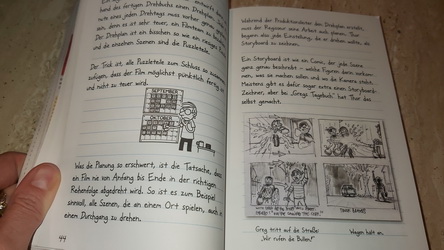 hand des fertigen Drehbuchs einen Drehplan.
denn es ist sehr teuer, ein Filmteam
Der Drehplan ist ein bisschen so wie ein
und die einzelnen Szenen sind die Puzzleteile.
Der Trick ist, alle Puzzleteile zum Schluss so zusammen-
zufügen, dass der Film möglichst pünktlich fertig
und nicht zu teuer wird.
SEPTEMBER
OKTOBER
Was die Planung so erschwert, ist die Tatsache, dass
ein Film nie von Anfang bis Ende in der richtigen
Reihenfolge abgedreht wird. So ist es zum Beispiel
sinnvoll, alle Szenen, die an einem Ort spielen, auch in
einem Durchgang zu drehen.
44
Während der Produktionsleiter den Drehplan erstellt,
muss der Regisseur seine Arbeit auch planen. Thor
begann also, jede Einstellung, die er drehen wollte, als
Storyboard zu zeichnen.
Ein Storyboard ist wie ein Comic, der jede Szene
ganz genau beschreibt – welche Figuren darin vorkom-
men, was sie machen sollen und wo die Kamera steht.
Meistens gibt es dafür sogar extra einen Storyboard-
Zeichner, aber bei „Gregs Tagebuch" hat Thor das
selbst gemacht.
Greg tritt auf die Straße:
„Wir rufen die Bullen!"
Wagen hält an.